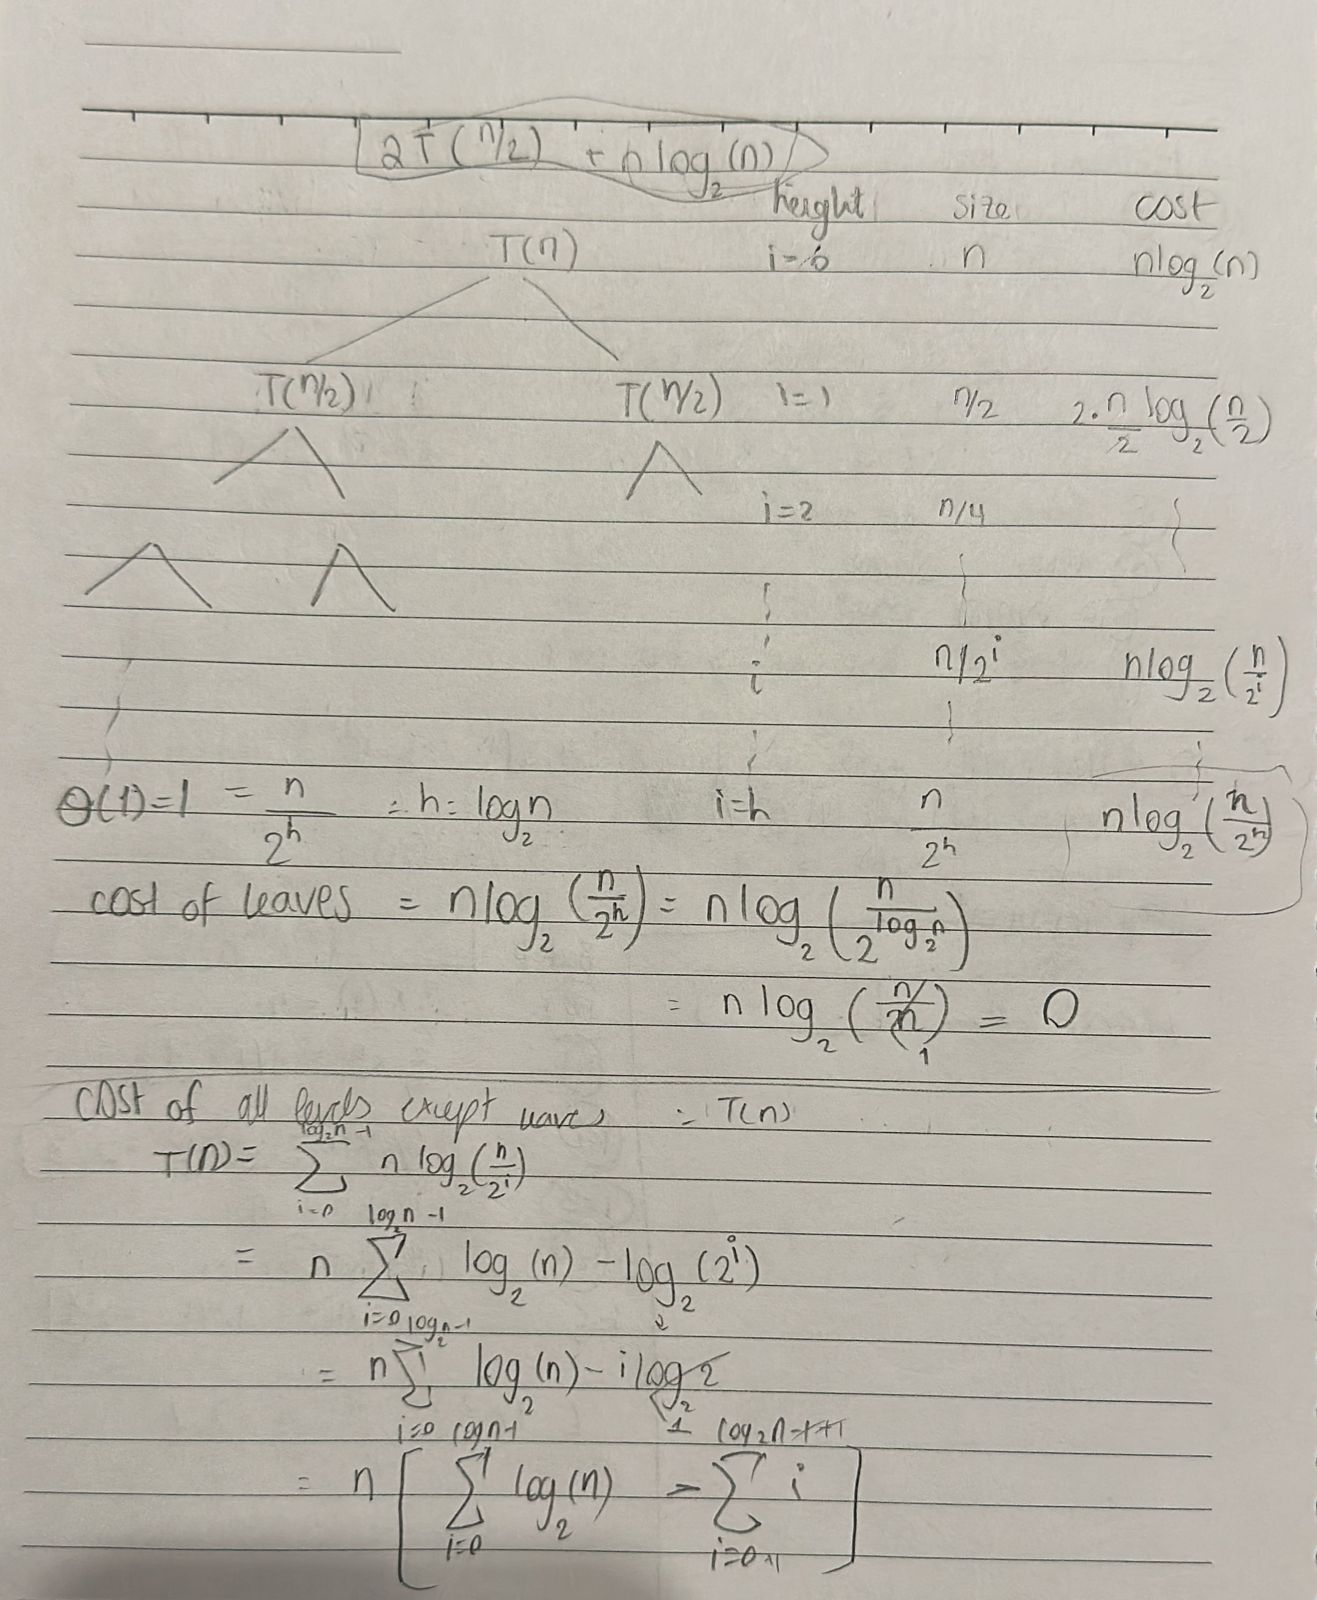 2T(n/2) + nlog₂(n)
height size cost
T(n) i=0 n nlog₂(n)
T(n/2) T(n/2) i=1 n/2 2·n/2 log₂(n/2)
i=2 n/4
i n/2ⁱ nlog₂(n/2ⁱ)
Θ(1)=1 = n/2ʰ = h = log₂n i=h n/2ʰ nlog₂(n/2ʰ)
cost of leaves = nlog₂(n/2ʰ) = nlog₂(n/2^(log₂n))
= nlog₂(n/n) = 0
1
cost of all levels except leaves = T(n)
T(n) = Σ_{i=0}^{log₂n-1} n log₂(n/2ⁱ)
= n Σ_{i=0}^{log₂n-1} log₂(n) - log₂(2ⁱ)
= n Σ_{i=0}^{log₂n-1} log₂(n) - i log₂2
1
= n [ Σ_{i=0}^{logn-1} log₂(n) - Σ_{i=0+1}^{log₂n-1+1} i ]